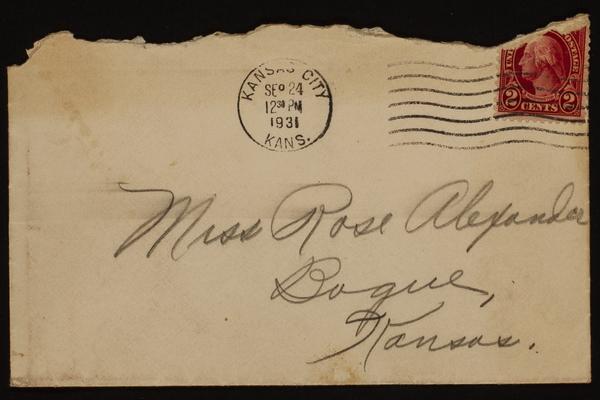 KANSAS CITY
SEP 24
12 30 PM
1931
KANS.
UNI
POSTAGE
2 CENTS 2
Miss Rose Alexander
Bogue,
Kansas.